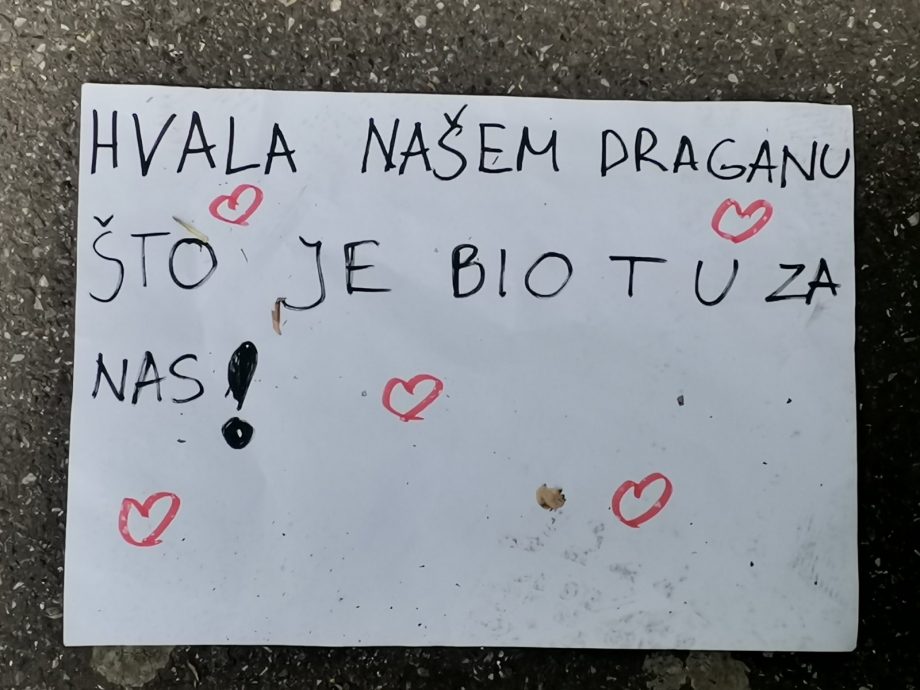 HVALA NAŠEM DRAGANU
ŠTO JE BIO TU ZA
NAS!